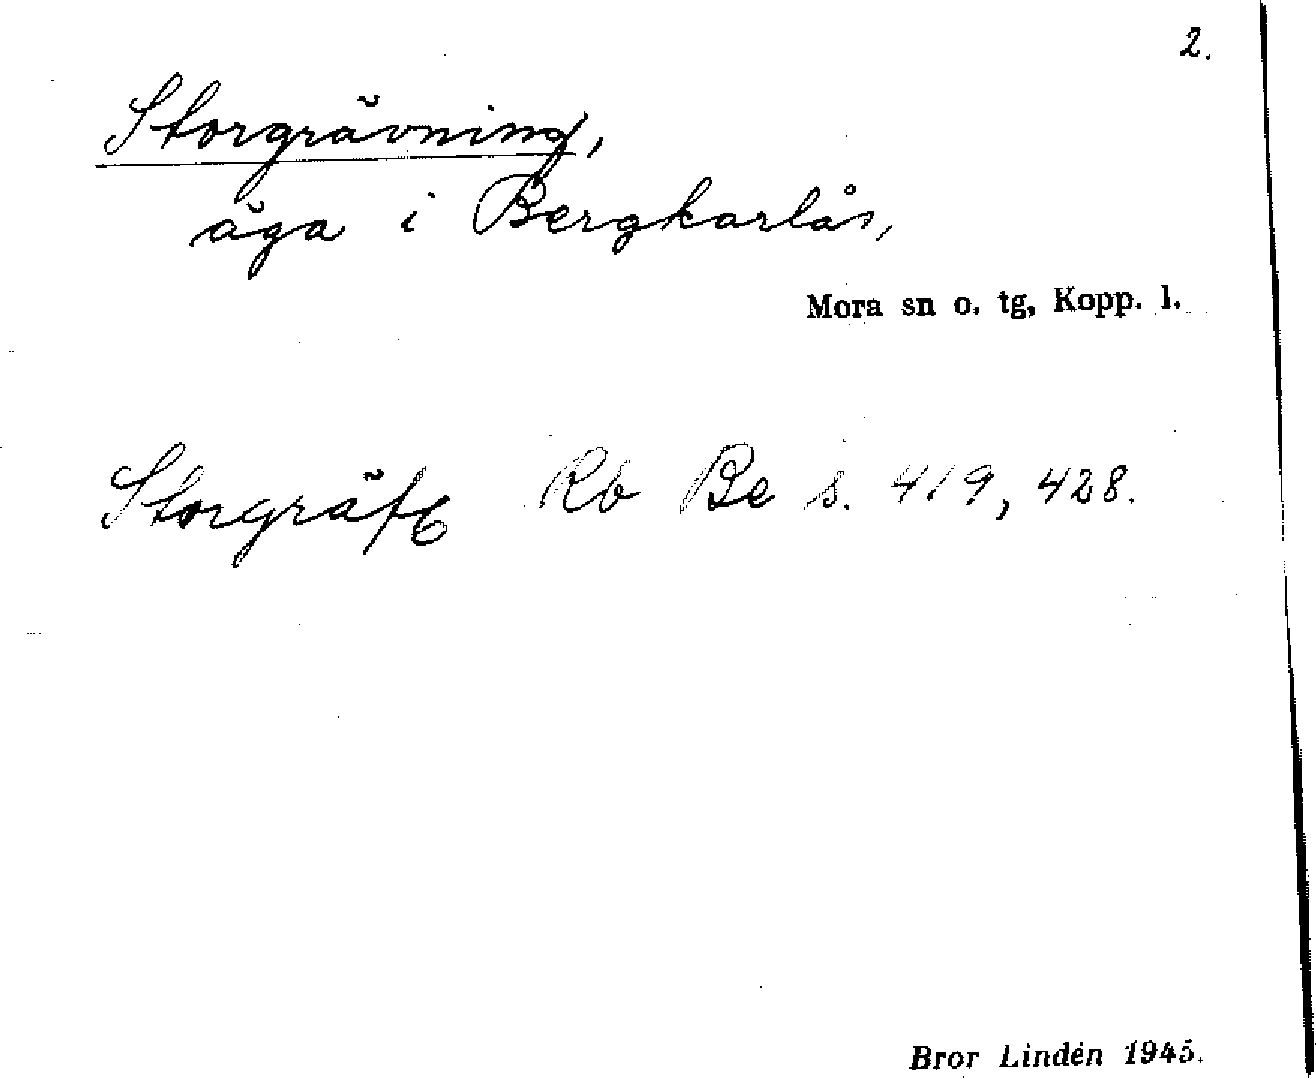 2.
Storgrävning,
äga i Bergkarlås,
Mora sn o. tg, Kopp. l.
Storgräfg Rb Be s. 419, 428.
Bror Lindén 1945.